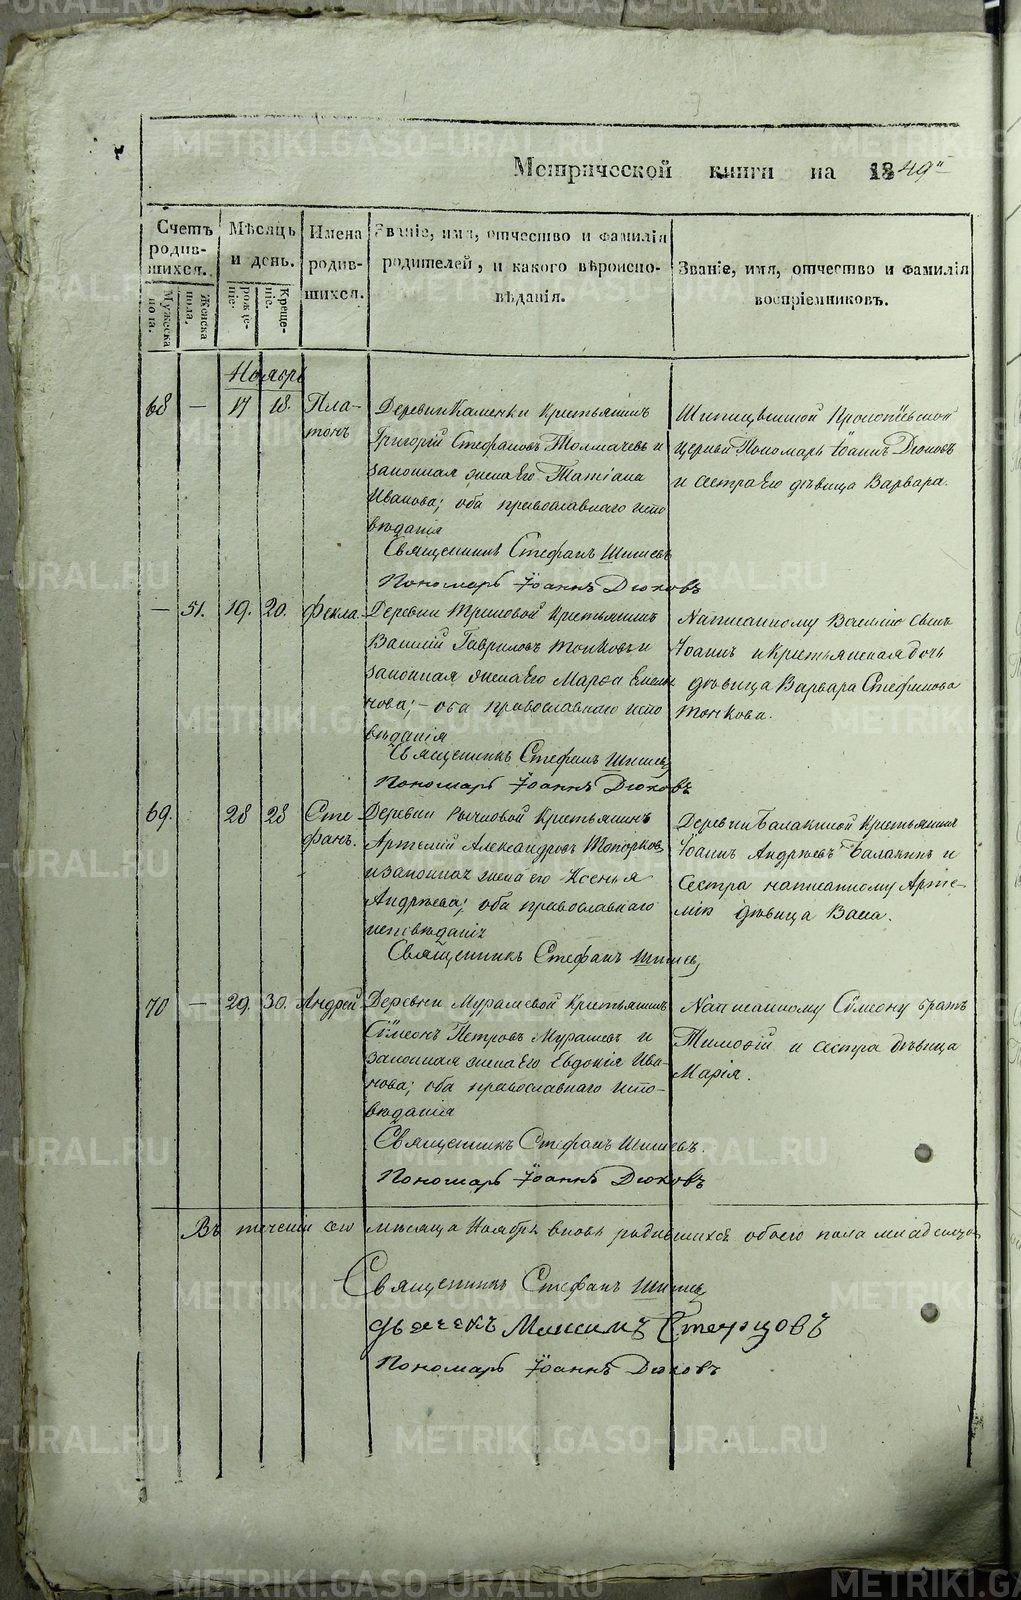 Метрической книги на 1849й
Счетъ родив-шихся.
Мужеска пола.
Женска пола.
Мѣсяцъ и день.
рожде-ніе.
Креще-ніе.
Имена родив-шихся.
Званіе, имя, отчество и фамилія
родителей, и какого вѣроиспо-
вѣданія.
Званіе, имя, отчество и фамилія
воспріемниковъ.
Ноябрь
68 — 17 18. Пла-
тонъ
Деревни Каменки крестьянинъ
Григорій Стефановъ Толмачевъ и
законная жена Его Татіана
Иванова; оба православнаго испо
вѣданія
Священникъ Стефанъ Шишевъ
Пономарь Іоаннъ Дюковъ
Церкви Пономарь Іоаннъ Дюковъ
и сестра Его дѣвица Варвара.
— 51. 19. 20. Фекла.
Деревни крестьянинъ
Василій Гавриловъ и
законная жена Его Марфа Емелья
нова; – оба православнаго испо
вѣданія
Священникъ Стефанъ Шишевъ
Пономарь Іоаннъ Дюковъ
Написанному Василію
Іоаннъ и крестьянская дочь
дѣвица Варвара Стефанова
69. 28 28 Сте
фанъ.
Деревни крестьянинъ
Артемій Александровъ Топорковъ
и законная жена его Ксенья
Андреева; оба православнаго
исповѣданія
Священникъ Стефанъ Шишевъ
Деревни Балакиной крестьянинъ
Іоаннъ Андреевъ Балакинъ и
Сестра написанному Арте-
мію дѣвица Васса.
70 — 29. 30. Андрей
Деревни Мурашевой крестьянинъ
Сѵмеонъ Петровъ Мурашевъ и
законная жена Его Евдокія Ива-
нова; оба православнаго испо-
вѣданія
Священникъ Стефанъ Шишевъ.
Пономарь Іоаннъ Дюковъ
Написанному Сѵмеону братъ
Тимофій и сестра дѣвица
Марія.
Въ теченіи сего мѣсяца Ноября вновь родившихся обоего пола младенцовъ
Священникъ Стефанъ Шишевъ
дьячекъ Максимъ Стерховъ
Пономарь Іоаннъ Дюковъ
METRIKI.GASO-URAL.RU